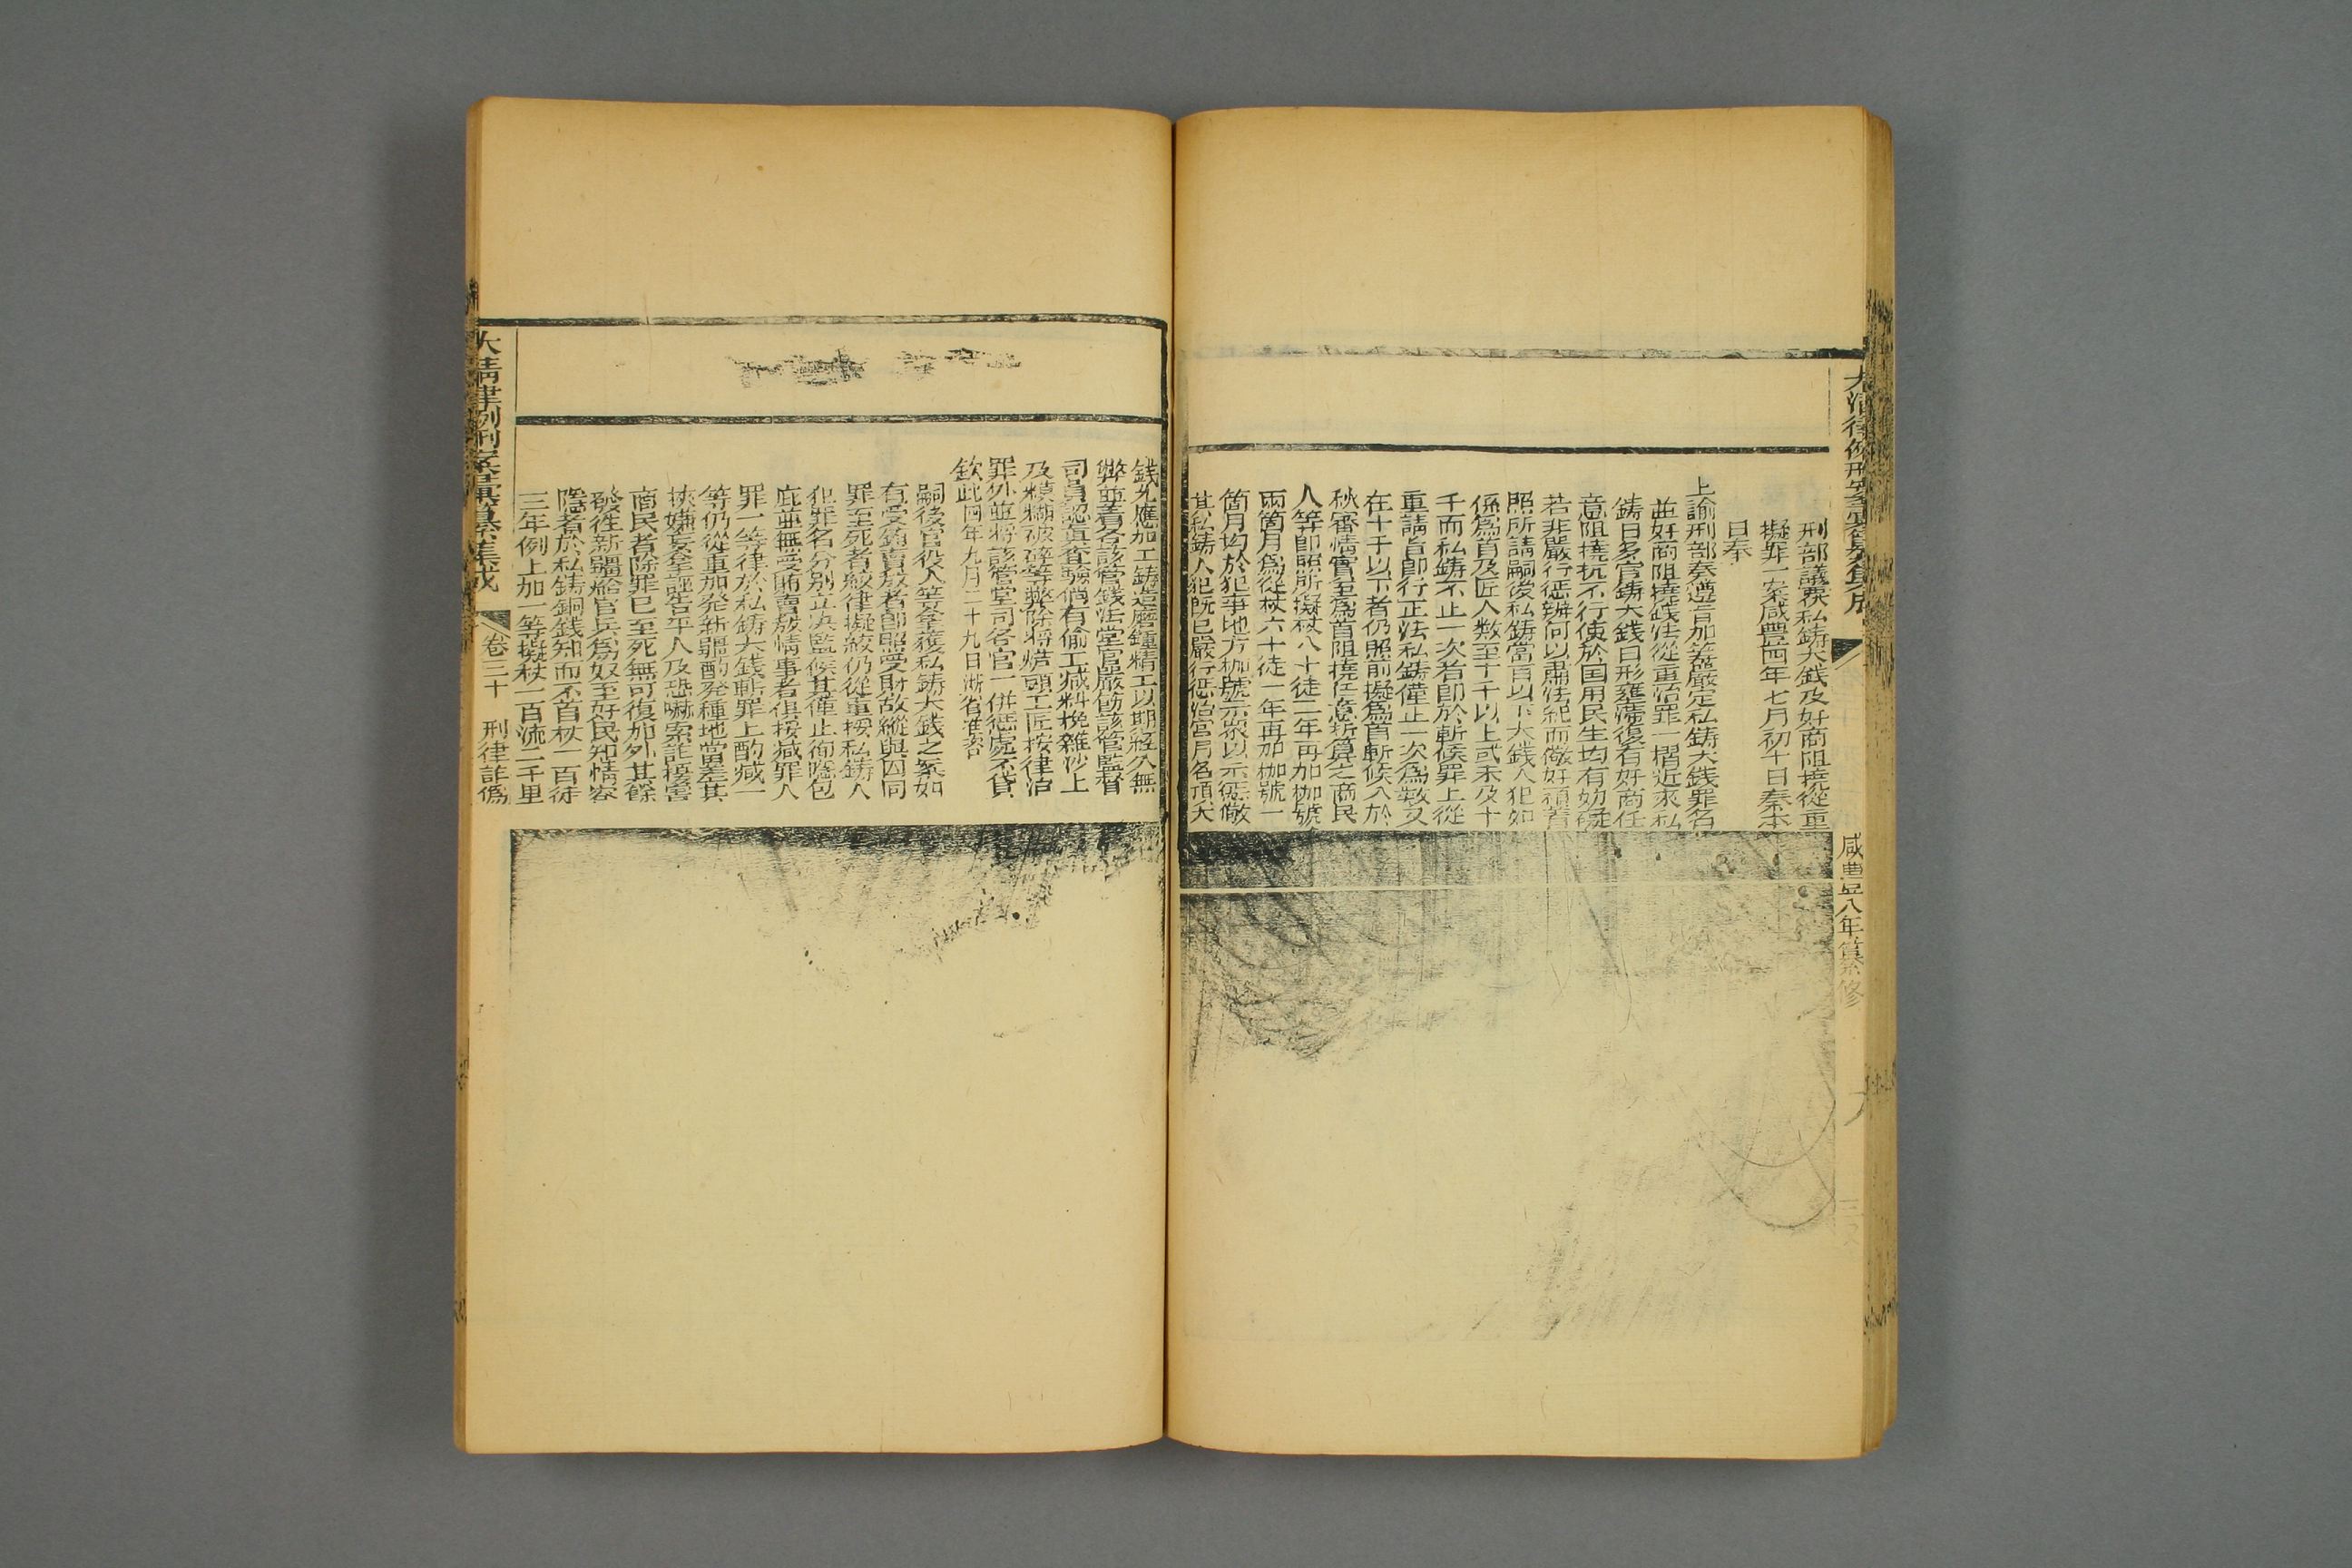 大清律例刑案彙纂集成
咸豐八年纂修
刑部議覆私鑄大錢及奸商阻撓從重
擬罪一案咸豐四年七月初十日奏本
日奉
上諭刑部奏遵旨加等嚴定私鑄大錢罪名
並奸商阻撓錢法從重治罪一摺近來私
鑄日多官鑄大錢日形壅滯復有奸商任
意阻撓抗不行使於国用民生均有妨礙
若非嚴行惩辦何以肅法紀而儆奸頑着
照所請嗣後私鑄當百以下大錢人犯如
係爲首及匠人数至十千以上或未及十
千而私鑄不止一次者即於斬候罪上從
重請旨即行正法私鑄僅止一次爲數又
在十千以下者仍照前擬爲首斬候入於
秋審情實至爲首阻撓任意折算之商民
人等即照所擬杖八十徒二年再加枷號
兩箇月爲從杖六十徒一年再加枷號一
箇月均於犯事地方枷號示衆以示惩儆
其私鑄人犯既已嚴行惩治宮局各項大
錢尤應加工鑄造磨鑢精工以期經久無
弊並着各該管錢法堂官嚴飭該管監督
司員認真查驗倘有偷工减料攙雜沙土
及糢糊破碎等弊除將炉頭工匠按律治
罪外並將該管堂司各官一併惩處不貸
欽此四年九月二十九日浙省准咨
嗣後官役人等拏獲私鑄大錢之案如
有受賄賣放者即照受財故縱與囚同
罪至死者絞律擬絞仍從重按私鑄人
犯罪名分别立决監候其僅止徇隱包
庇並無受賄賣放情事者俱按减罪人
罪一等律於私鑄大錢斬罪上酌减一
等仍從重加発新疆酌発種地當差其
挾嫌妄拏誣告平人及恐嚇索詐擾害
商民者除罪已至死無可復加外其餘
發往新疆給官兵爲奴至奸民知情容
隱者於私鑄銅錢知而不首杖一百徒
三年例上加一等擬杖一百流二千里
大清律例刑案彙纂集成
卷三十
刑律詐僞